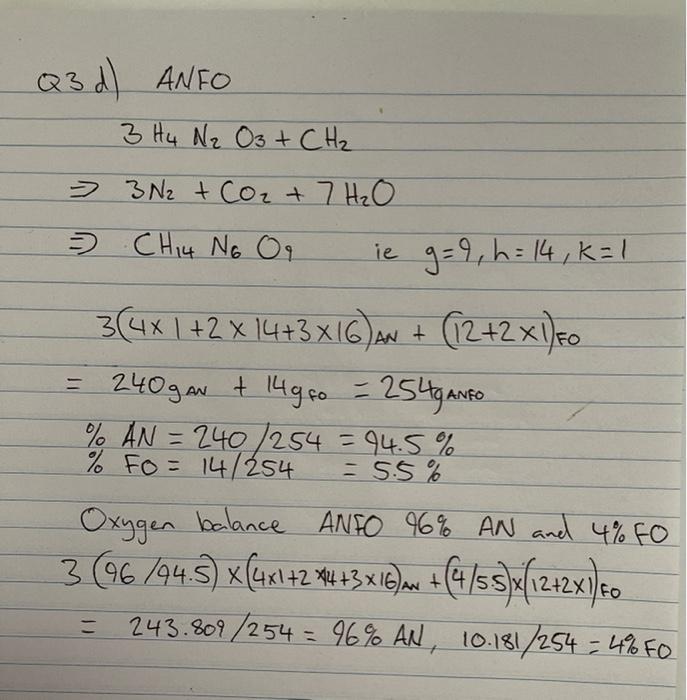 Q3 d) ANFO
3 H4 N2 O3 + CH2
⇒ 3N2 + CO2 + 7 H2O
⇒ CH14 N6 O9 ie g=9, h=14, k=1
3(4×1+2×14+3×16)AN + (12+2×1)FO
= 240g AN + 14g FO = 254g ANFO
% AN = 240/254 = 94.5 %
% FO = 14/254 = 5.5 %
Oxygen balance ANFO 96% AN and 4% FO
3 (96/94.5) × (4×1+2×14+3×16)AN + (4/5.5)×(12+2×1)FO
= 243.809/254 = 96% AN, 10.181/254 = 4% FO